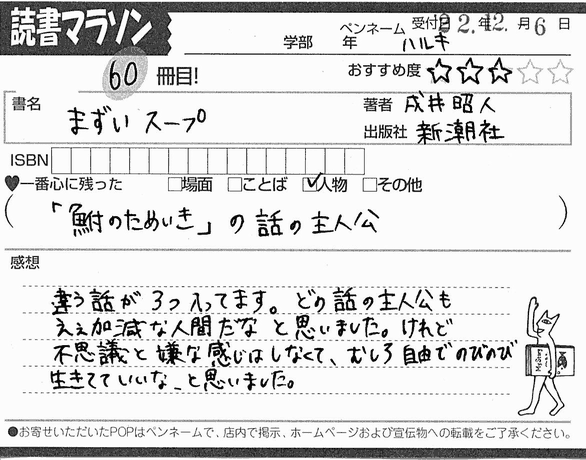 読書マラソン
学部 年 ペンネーム ハルキ 受付日 22.年12.月6日
60 冊目!
おすすめ度 ☆☆☆☆☆
書名 まずいスープ
著者 戌井昭人
出版社 新潮社
ISBN
♥一番心に残った □場面 □ことば ☑人物 □その他
(「鮒のためいき」の話の主人公)
感想
違う話が3つ入ってます。どの話の主人公も
ええ加減な人間だな と思いました。けれど
不思議と嫌な感じはしなくて、むしろ自由でのびのび
生きてていいな、と思いました。
●お寄せいただいたPOPはペンネームで、店内で掲示、ホームページおよび宣伝物への転載をご了承ください。